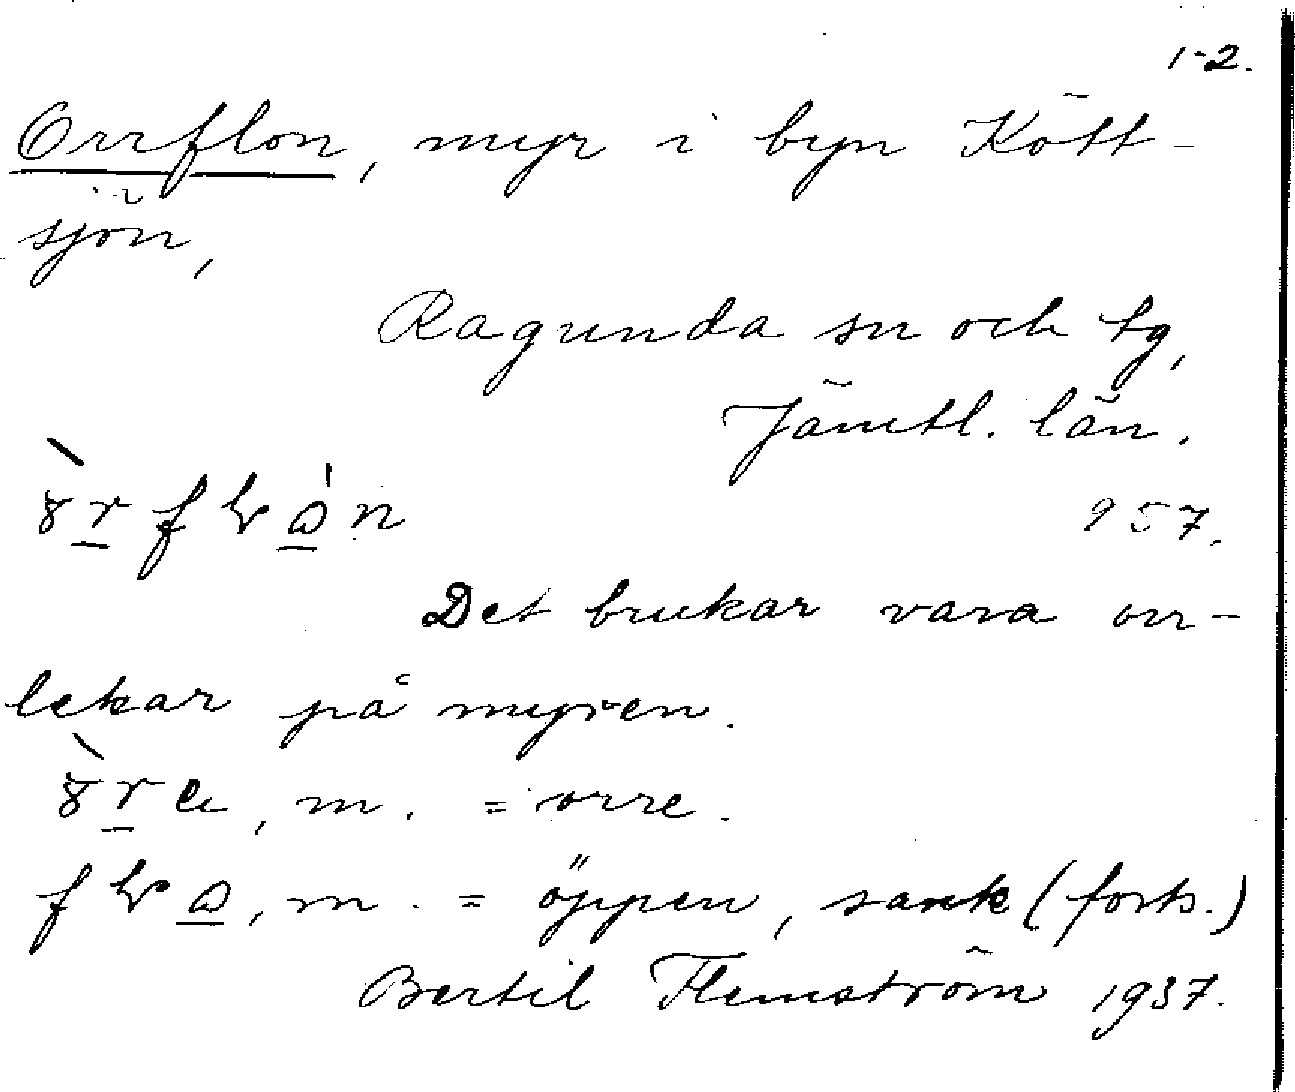 1-2.
Orrflon, myr i byn Kött-
sjön,
Ragunda sn och tg,
Jämtl. län.
957.
Det brukar vara orr-
lekar på myren.
m. = orre.
m. = öppen, sank (forts.)
Bertil Flemström 1937.